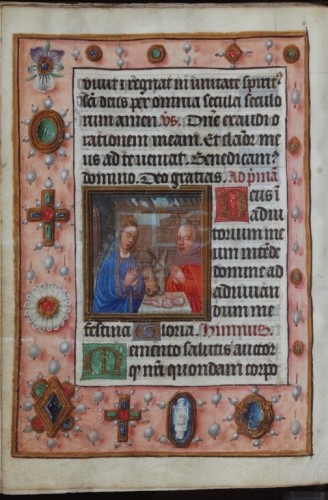 vivit ⁊ regnat in unitate spirit⁹
sci deus per omnia secula seculo
rum amen. Vs. Dne exaudi o
rationem meam. Et clamor me
us ad te veniat. Benedicam⁹
domino. Deo gratias. Ad pmā
Deus i
adiu
torium me
um intēde
domine ad
adiuvan
dum me
festina Gloria. Hymnus
Memento salutis auctor
q̄ nri quondam corpo